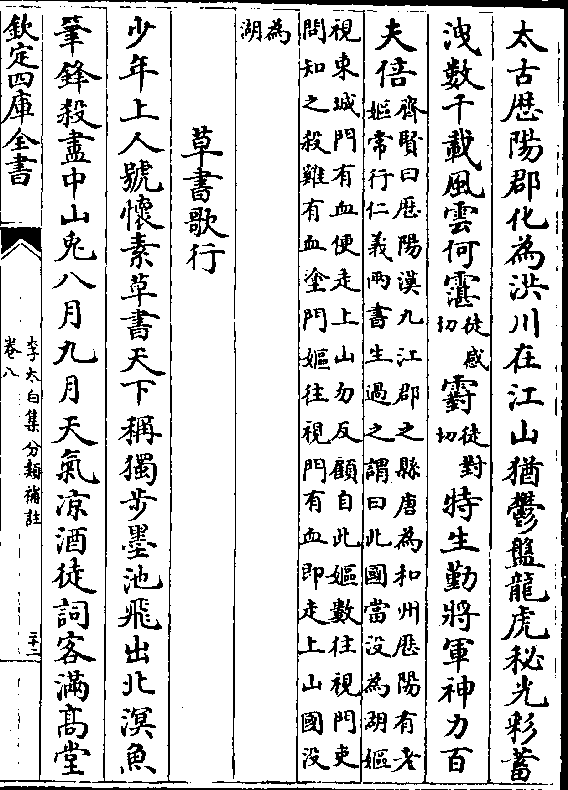 太古歴陽郡化為洪川在江山猶鬱盤龍虎秘光彩蓄
洩數千載風雲何霮徒感切䨴徒對切特生勤將軍神力百
夫倍齊賢曰歴陽漢九江郡之縣唐為和州歴陽有老
嫗常行仁義兩書生過之謂曰此國當没為湖嫗
視東城門有血便走上山勿反顧自此嫗數往視門吏
問知之殺雞有血塗門嫗往視門有血即走上山國没
為
湖
草書歌行
少年上人號懷素草書天下稱獨步墨池飛出北溟魚
筆鋒殺盡中山兎八月九月天氣凉酒徒詞客滿髙堂
欽定四庫全書
李太白集分類補註
卷八